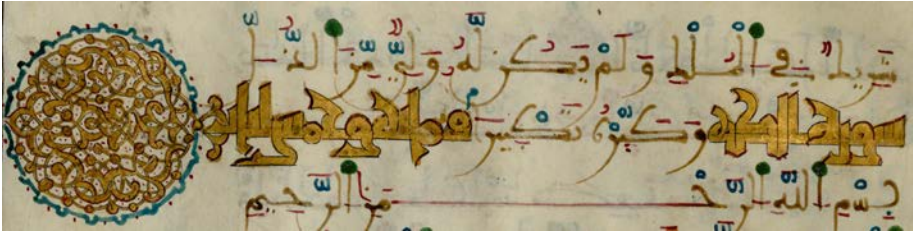 شَرِيكٌ فِي الْمُلْكِ وَلَمْ يَكُن لَّهُ وَلِيٌّ مِّنَ الذُّلِّ
سورة الكهف وَكَبِّرْهُ تَكْبِيرًا مائة وخمس ايات
بِسْمِ اللَّهِ الرَّحْمَٰنِ الرَّحِيمِ